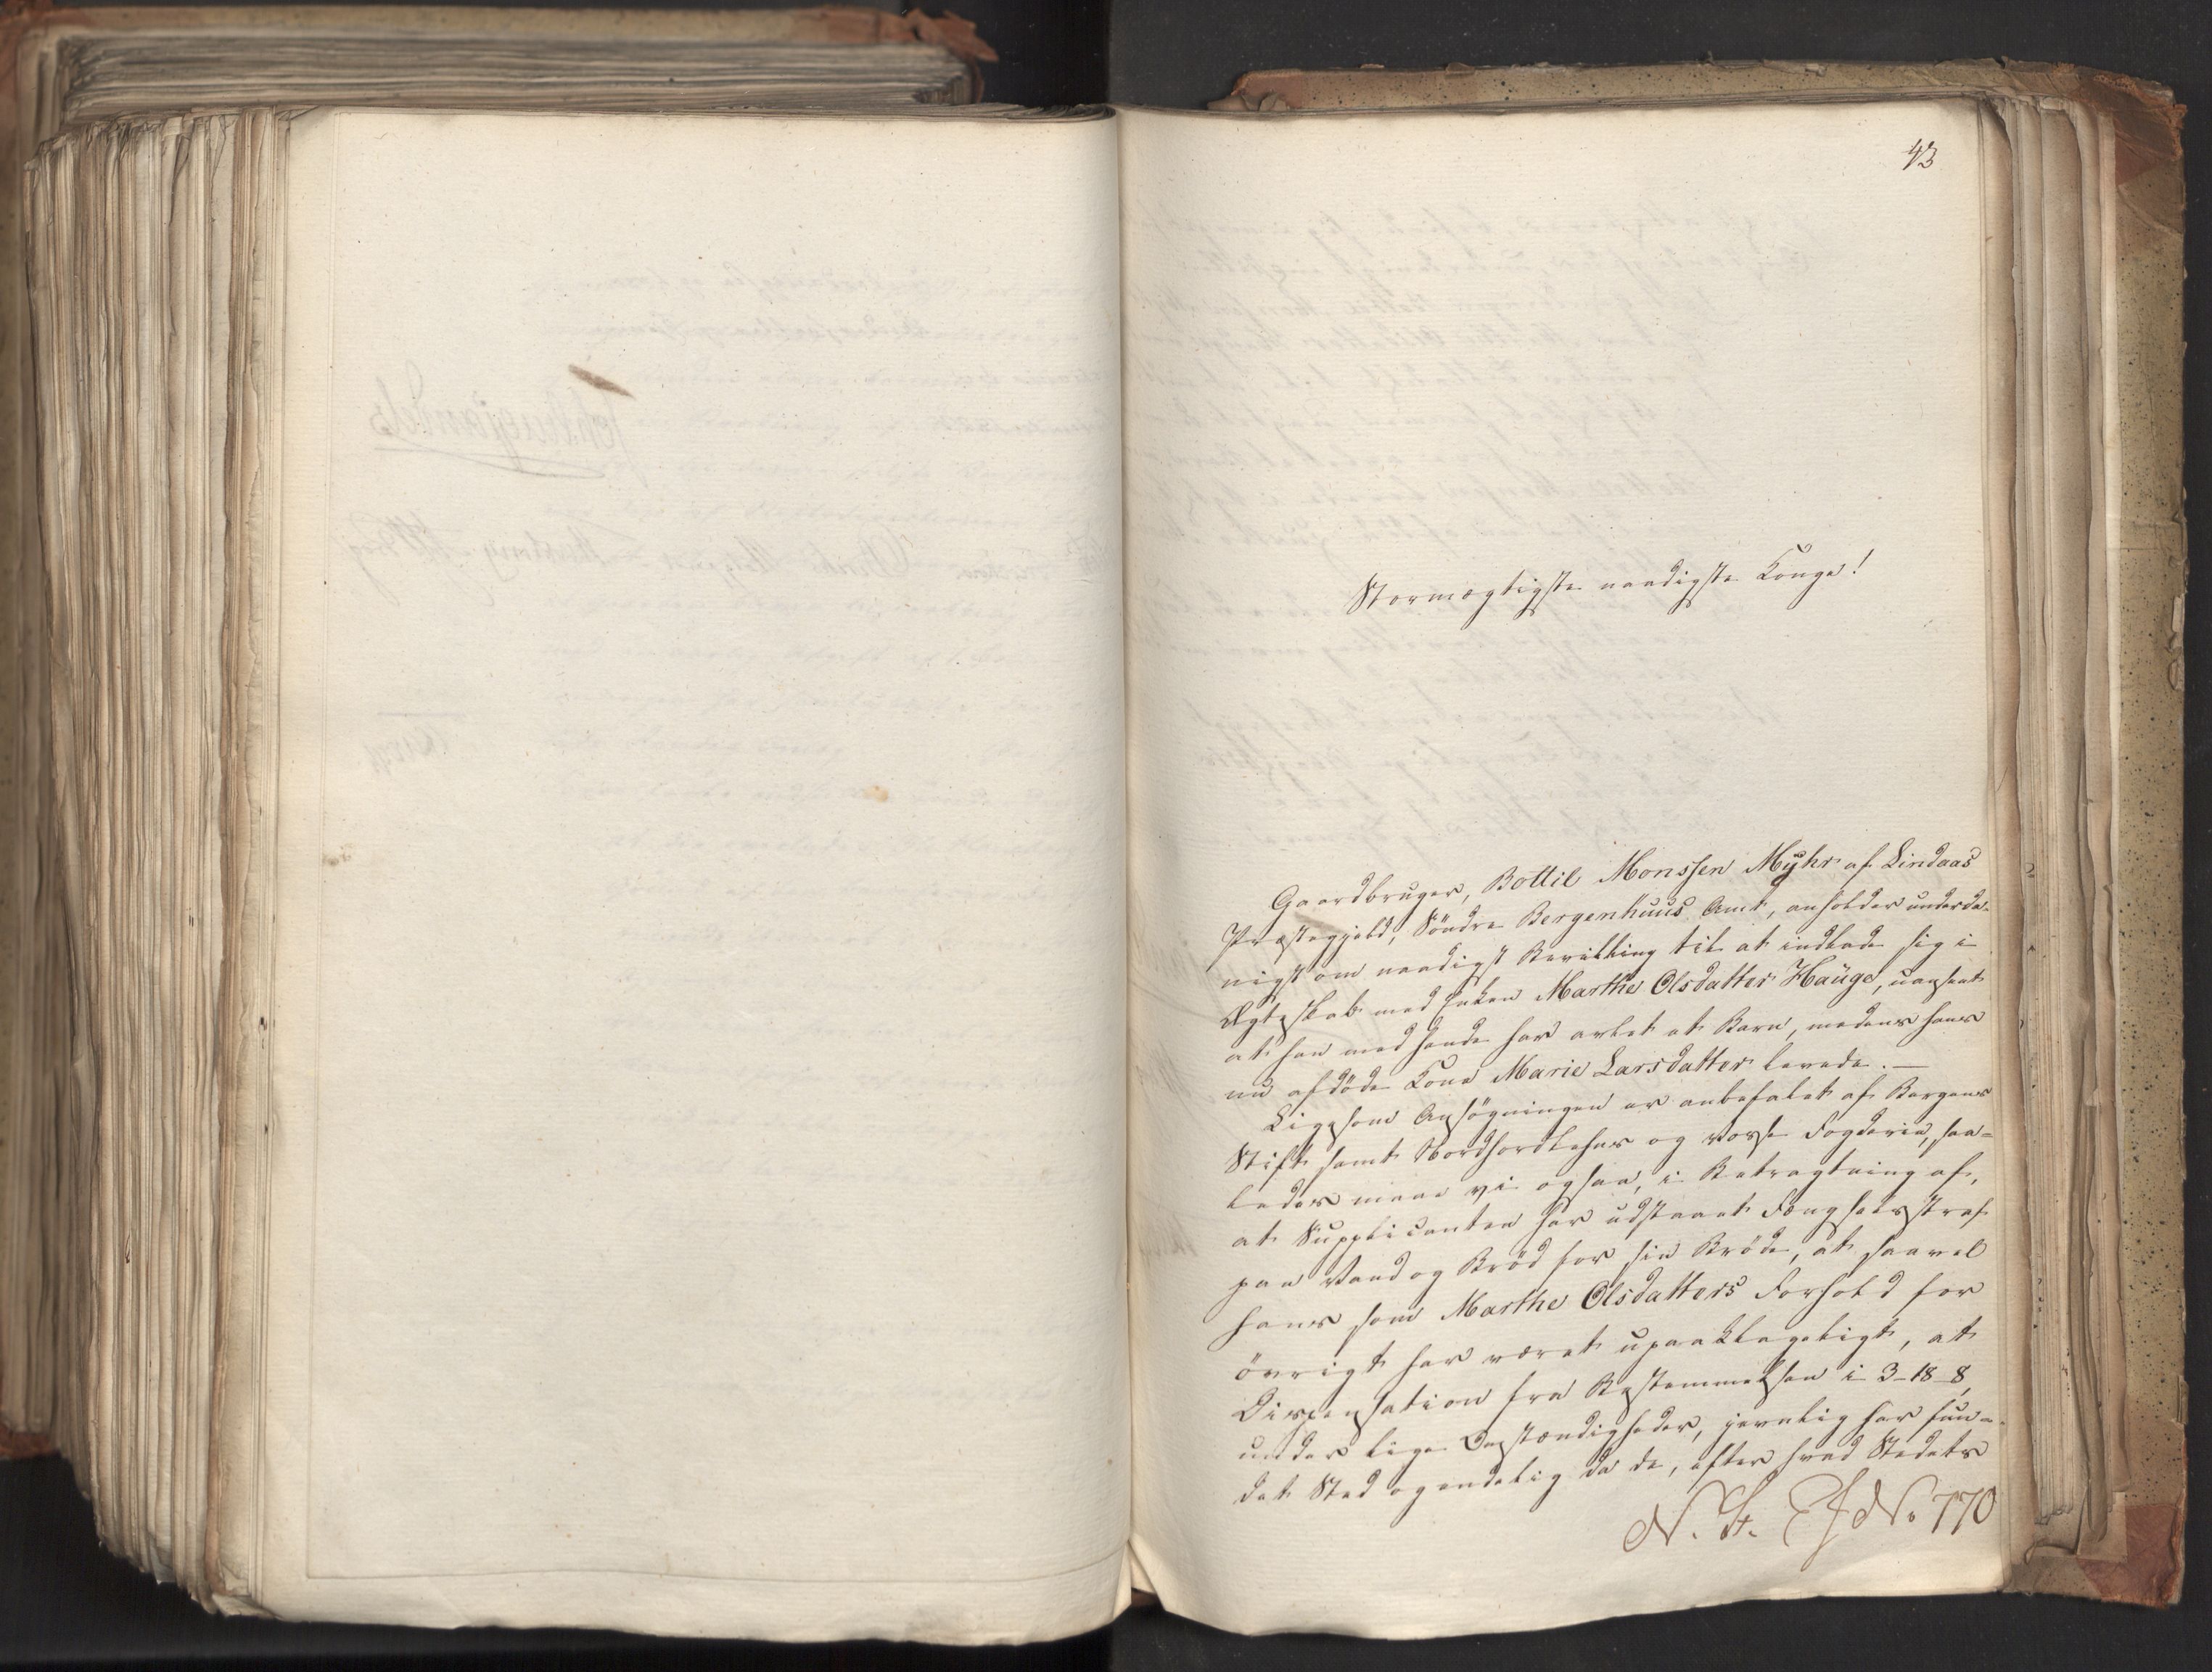 43
Stormægtigste naadigste Konge!
Gaardbruger, Bottil Monssen Myhr af Lindaas
Præstegjeld, Söndre Bergenhuus Amt, anholder underda-
nigst om naadigst Bevilling til at indlade sig i
Ægteskab med Enken Marthe Olsdatter Hauge, uagtet
at han med hende har avlet et Barn, medens hans
nu afdöde Kone Marie Larsdatter levede. —
Ligesom Ansögningen er anbefalet af Bergens
Stift samt Nordhordlehns og Vosse Fogderie, saa-
ledes maae vi ogsaa, i Betragtning af,
at Supplicanten har udstaaet Fængselsstraf
paa Vand og Bröd for sin Bröde, at saavel
hans som Marthe Olsdatters Forhold for
övrigt har været upaaklageligt, at
Dispensation fra Bestemmelsen i 3-18-8,
under lige Omstændigheder, jevnlig har fun-
det Sted og endelig da de, efter hvad Stedets
N. No 770